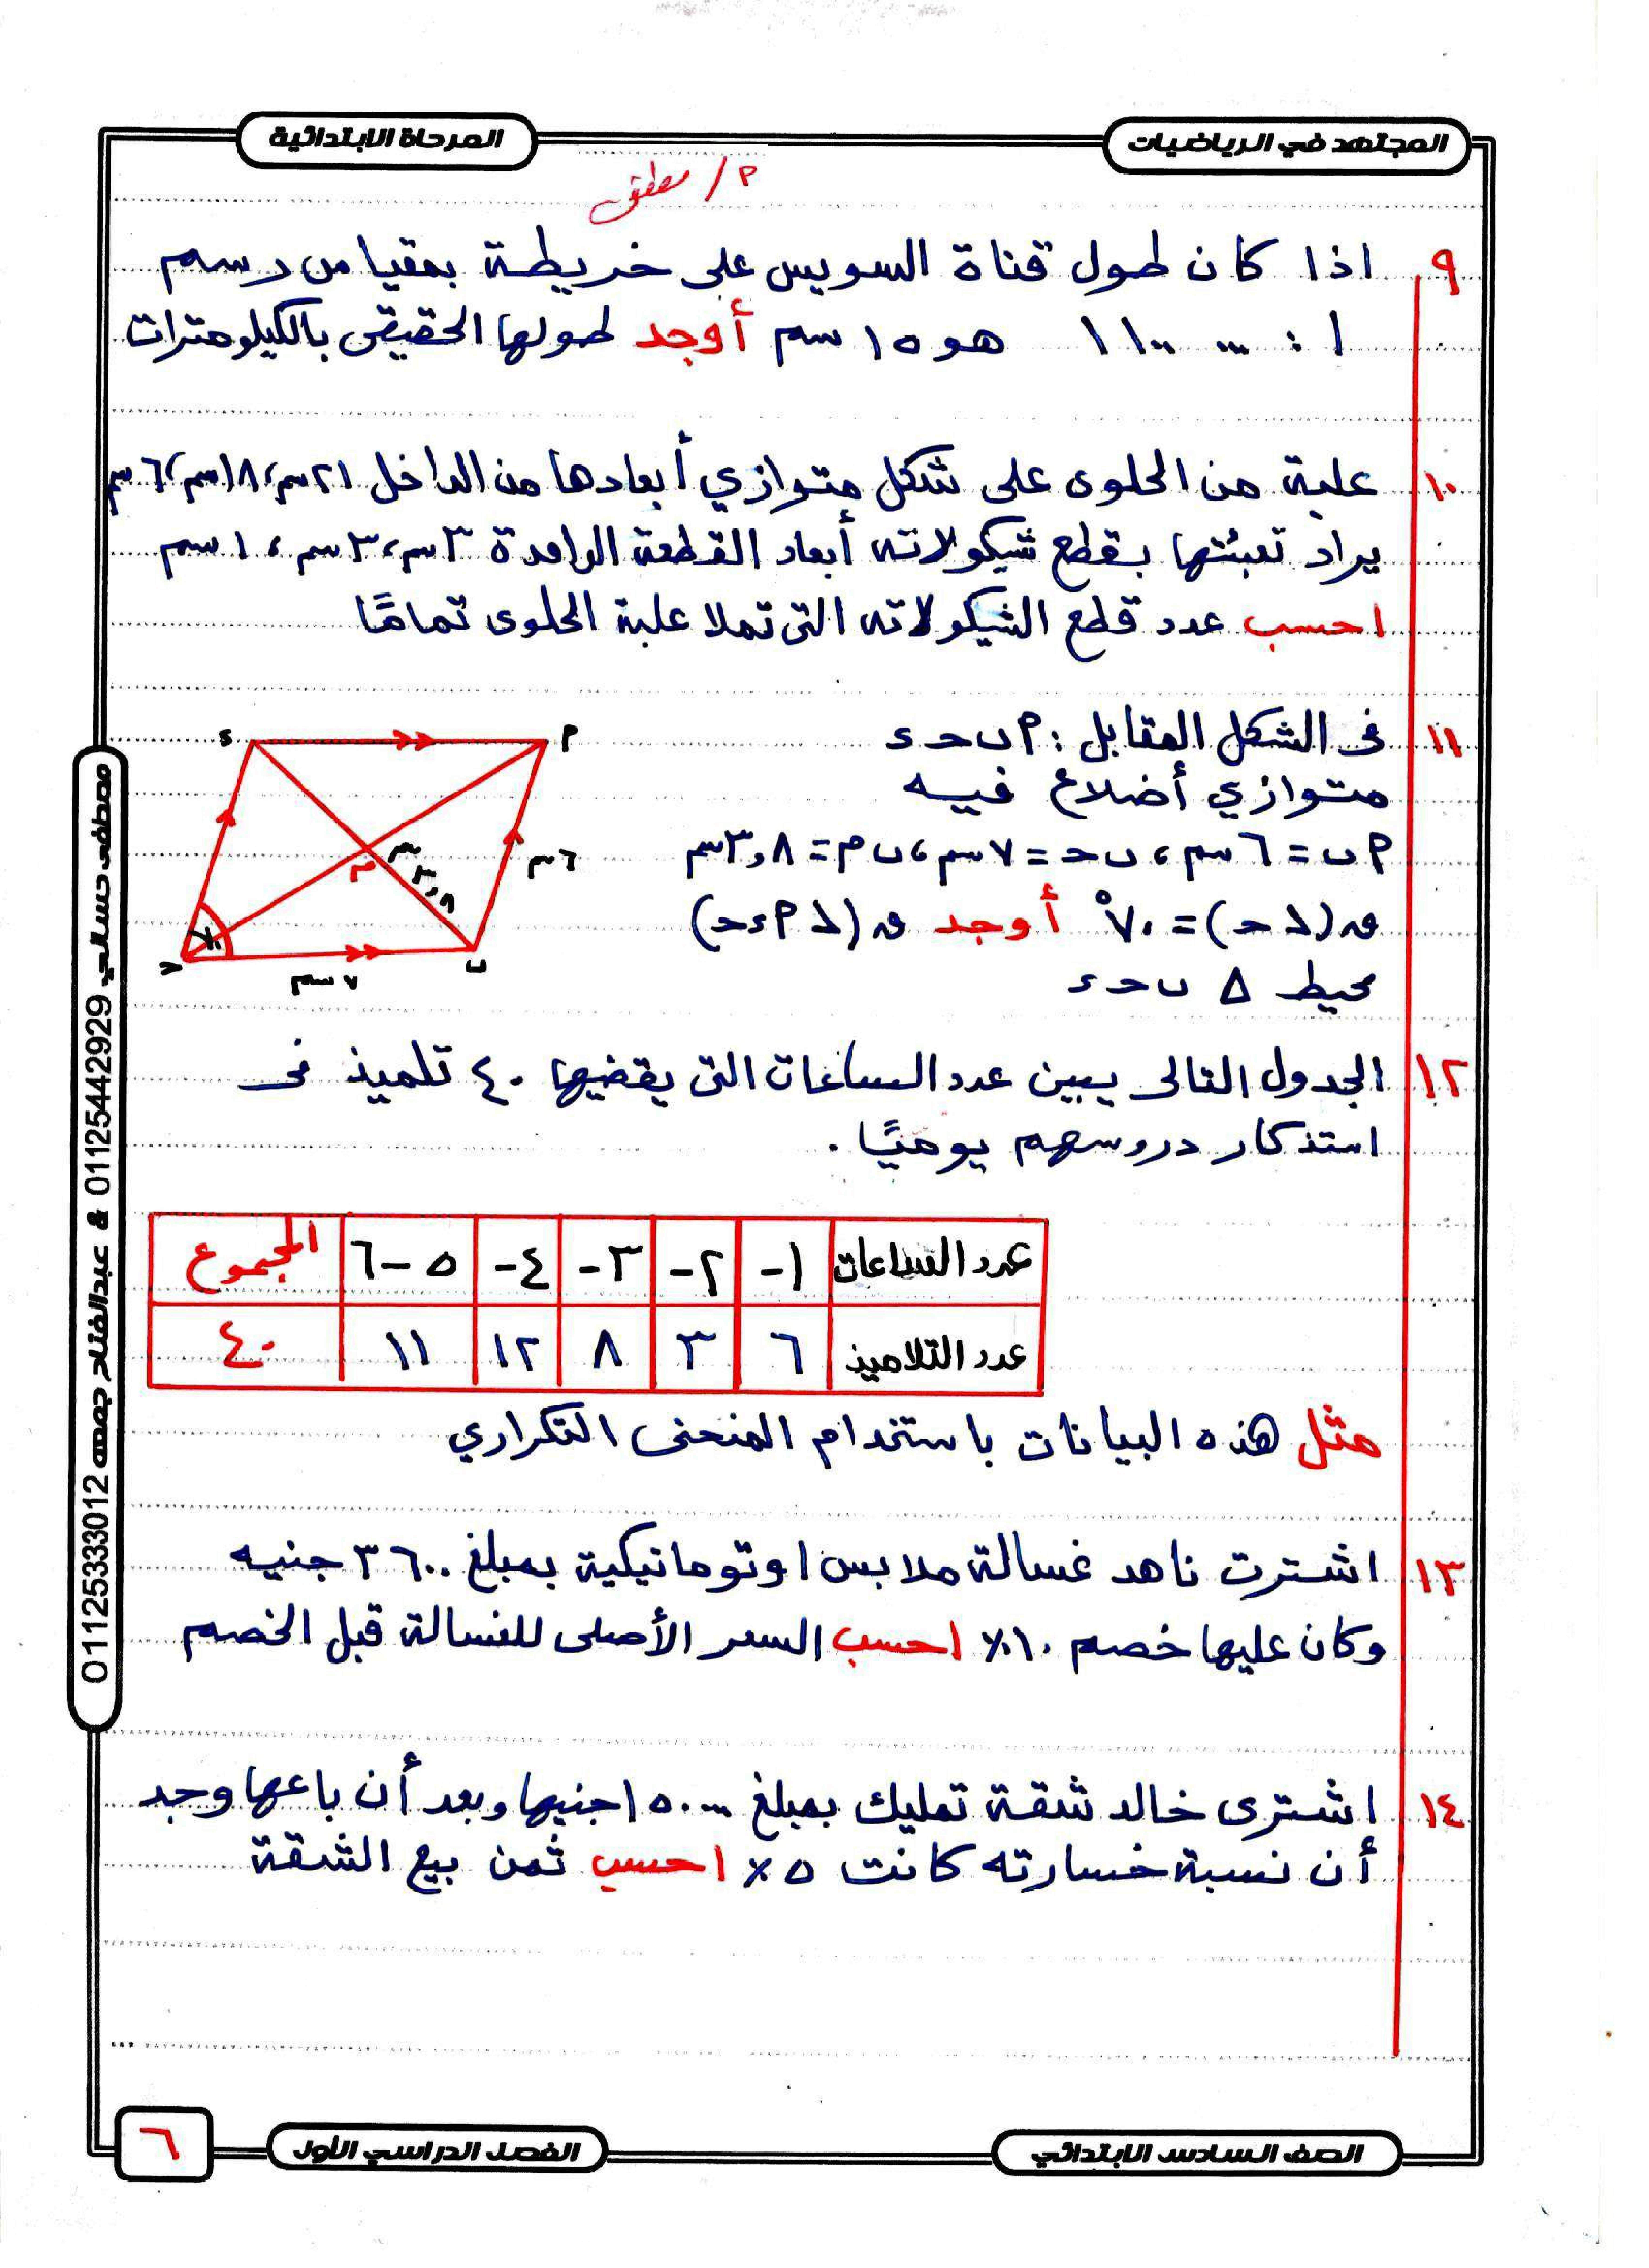 المجتهد في الرياضيات
المرحلة الابتدائية
م/ مصطفى
٩ اذا كان طول قناة السويس على خريطة بمقياس رسم
١ : ١١٠٠٠٠٠ هو ١٥ سم أوجد طولها الحقيقى بالكيلومترات
١٠ علبة من الحلوى على شكل متوازي أبعادها من الداخل ٢١ سم، ١٨ سم، ٦ سم
يراد تعبئتها بقطع شيكولاته أبعاد القطعة الواحدة ٣ سم، ٣ سم، ١ سم
احسب عدد قطع الشيكولاته التى تملا علبة الحلوى تمامًا
١١ فى الشكل المقابل: ٩ ب حـ ء
متوازي أضلاع فيه
٩ ب = ٦ سم، ب حـ = ٧ سم، ب م = ٣,٨ سم
ق (∠ حـ) = ٧٠° أوجد ق (∠ ٩ ء حـ)
محيط ∆ ب حـ ء
ء
٩
٦ سم
م
٣,٨ سم
٧٠
حـ
ب
٧ سم
١٢ الجدول التالى يبين عدد الساعات التى يقضيها ٤٠ تلميذ فى
استذكار دروسهم يوميًا.
عدد الساعات ١- ٢- ٣- ٤- ٥-٦ المجموع
عدد التلاميذ ٦ ٣ ٨ ١٢ ١١ ٤٠
مثل هذه البيانات باستخدام المنحنى التكراري
١٣ اشترت ناهد غسالة ملابس اوتوماتيكية بمبلغ ٣٦٠٠ جنيه
وكان عليها خصم ١٠٪ احسب السعر الأصلى للغسالة قبل الخصم
١٤ اشترى خالد شقة تمليك بمبلغ ١٥٠٠٠٠ جنيها وبعد أن باعها وجد
أن نسبة خسارته كانت ٥٪ احسب ثمن بيع الشقة
مصطفى حسالي 01125442929 & عبدالفتاح جمعه 01125333012
الصف السادس الابتدائي
الفصل الدراسي الأول
٦